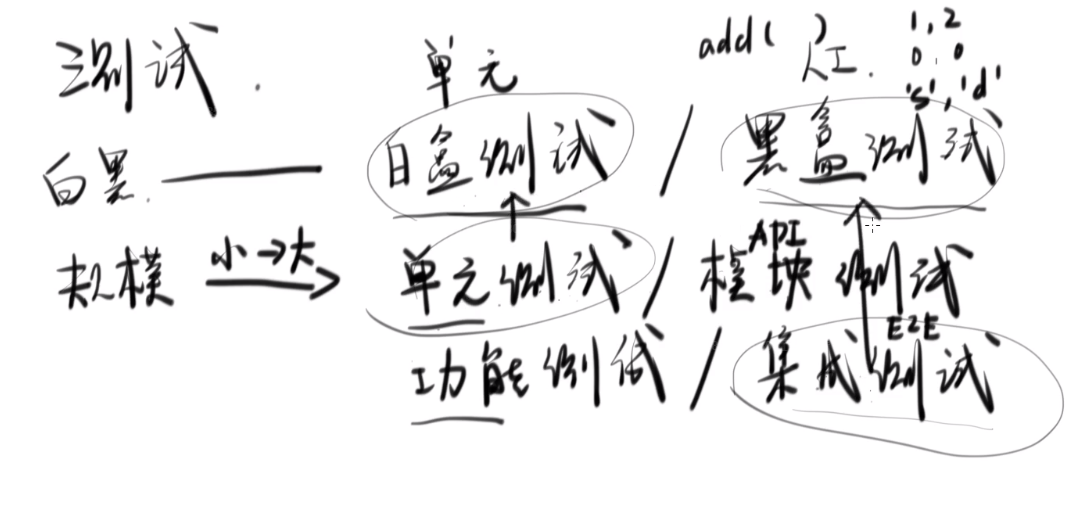 测试.
单元
add( )
人工.
1,2
0,0
's','d'
白黑.
白盒测试 / 黑盒测试
规模 小→大
单元测试 / 模块测试
API
功能测试 / 集成测试
E2E